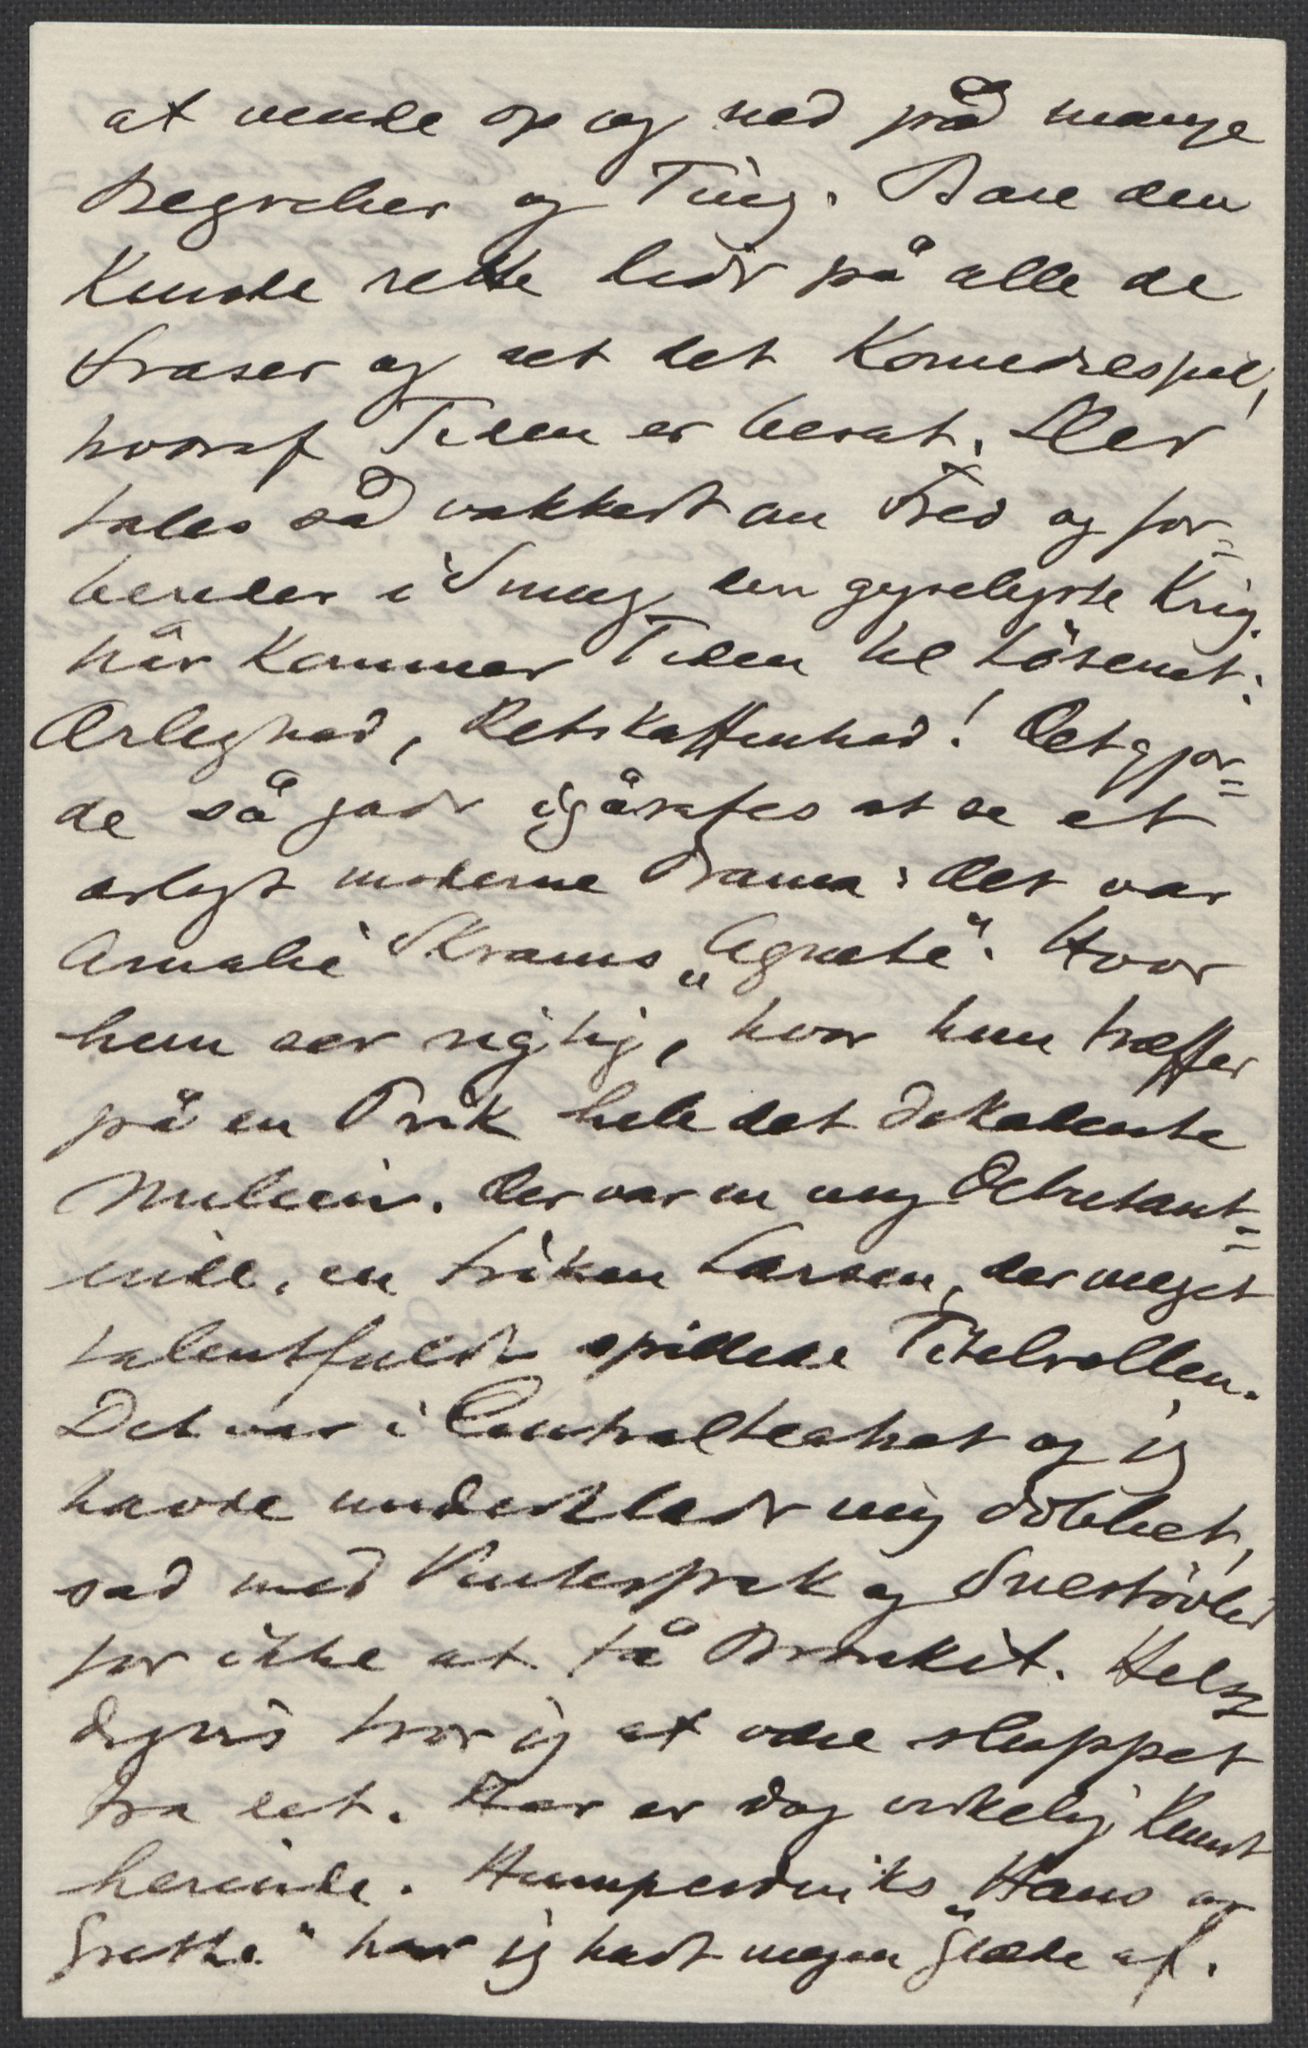 at vende op og ned på mange
Begreber og Ting. Bare den
kunde rette lidt på alle de
Fraser og alt det Komediespil,
hvoraf Tiden er besat. Der
tales så vakkert om Fred og for=
bereder i Smug den gyseligste Krig.
Når kommer Tiden til Løsenet:
Ærlighed, Retskaffenhed! Det gjor=
de så godt igåraftes at se et
ærligt moderne Drama: Det var
Amalie Skrams „Agnete“. Hvor
hun ser rigtig, hvor hun træffer
på en Prik hele det dekadente
Milieu. Der var en ung Debutant=
inde, en Frøken Larsen, der meget
talentfuldt spillede Titelrollen.
Det var i Centralteatret og jeg
havde underklædt mig dobbelt,
sad med Vinterfrak og Snestøvler
for ikke at få Bronkit. Heldig
digvis tror jeg at være sluppet
fra det. Der er dog virkelig Kunst
herinde. Humperdinks „Hans og
Grethe“ har jeg havt megen Glæde af.